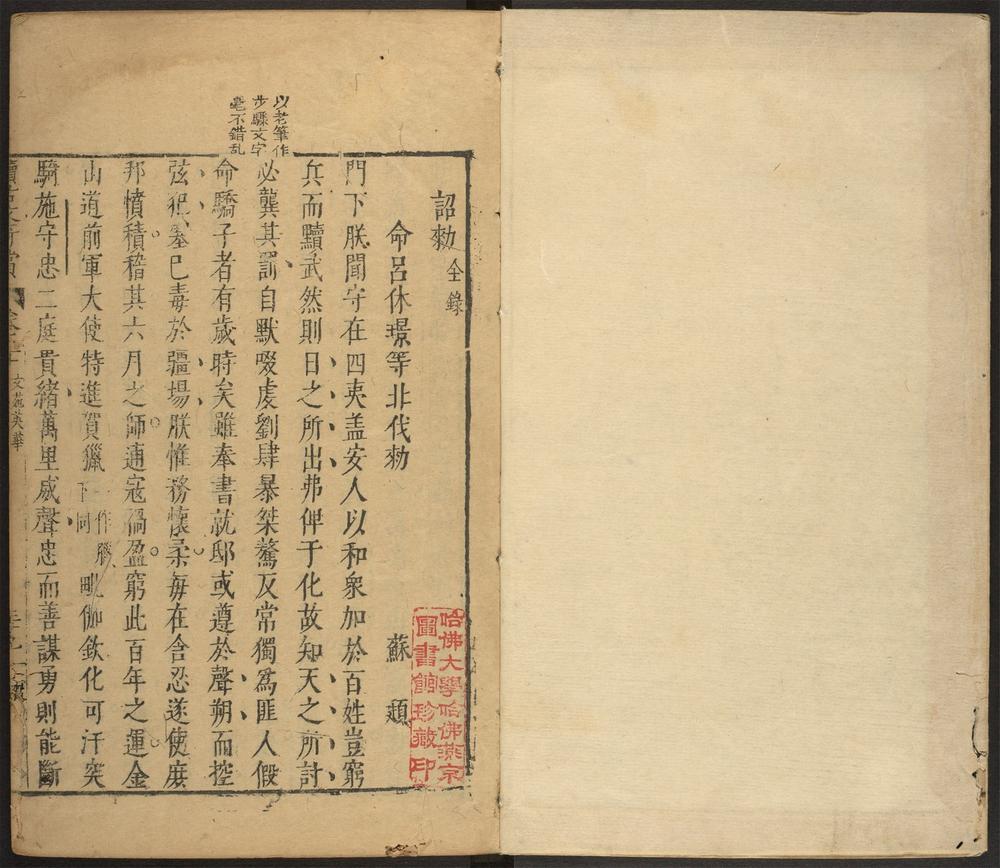 詔勑全錄
命呂休璟等北伐勑
蘇頲
門下朕聞守在四夷盖安人以和衆加於百姓豈窮
兵而黷武然則日之所出弗俾于化故知天之所討
必龔其罰自默啜虔劉肆暴桀驁反常獨為匪人假
命驕子者有歲時矣雖奉書就邸或遵於聲朔而控
弦犯塞巳毒於疆場朕惟務懷柔每在含忍遂使庶
邦憤積稽其六月之師逋寇禍盈窮此百年之運金
山道前軍大使特進賀獵一作臘下同毗伽欽化可汗突
騎施守忠二庭貫緒萬里威聲忠而善謀勇則能斷
以老筆作
步驟文字
毫不錯乱
文苑英華
哈佛大學哈佛燕京
圖書館珍藏印